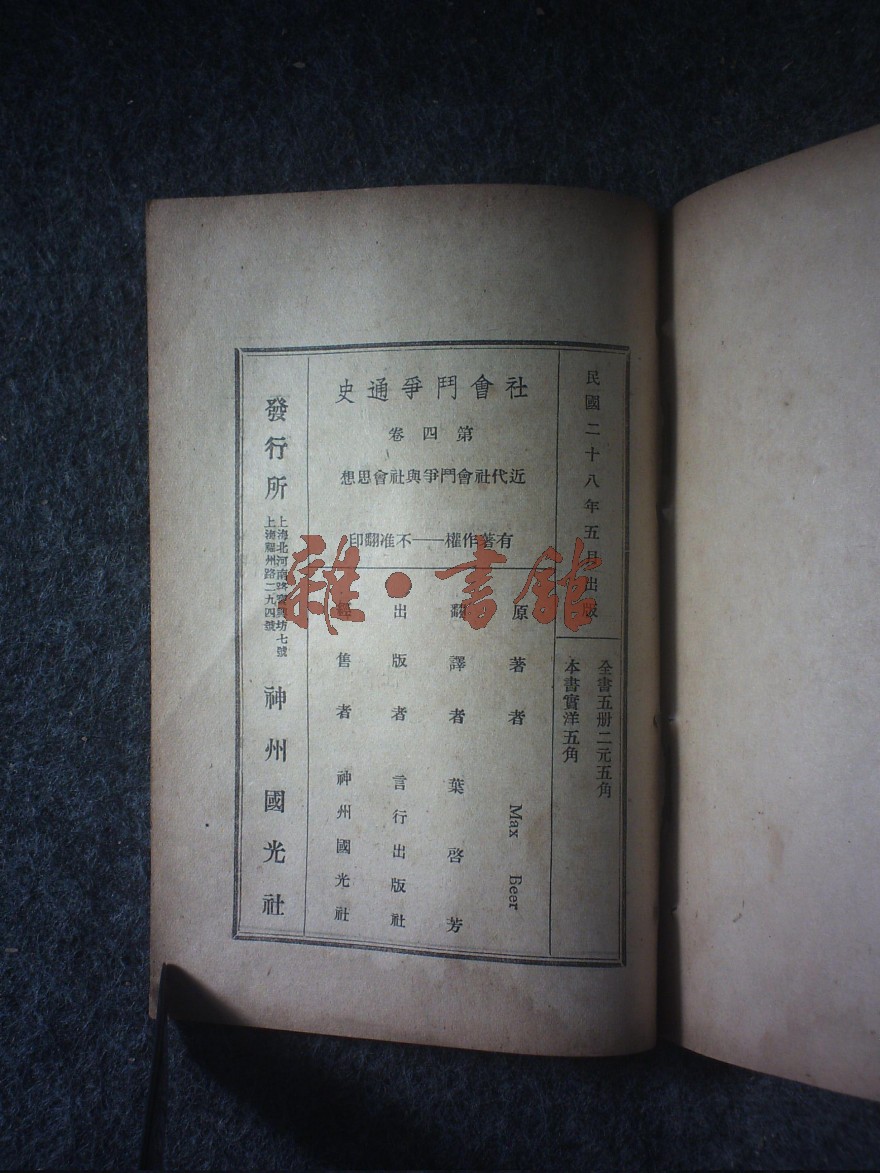 民國二十八年五月出版
全書五册二元五角
本書實洋五角
社會鬥爭通史
第四卷
近代社會鬥爭與社會思想
有著作權——不准翻印
原著者 Max Beer
翻譯者 葉啓芳
出版者 言行出版社
經售者 神州國光社
發行所
上海北河南路 坊七號
上海福州路二九四號
神州國光社
雜·書館